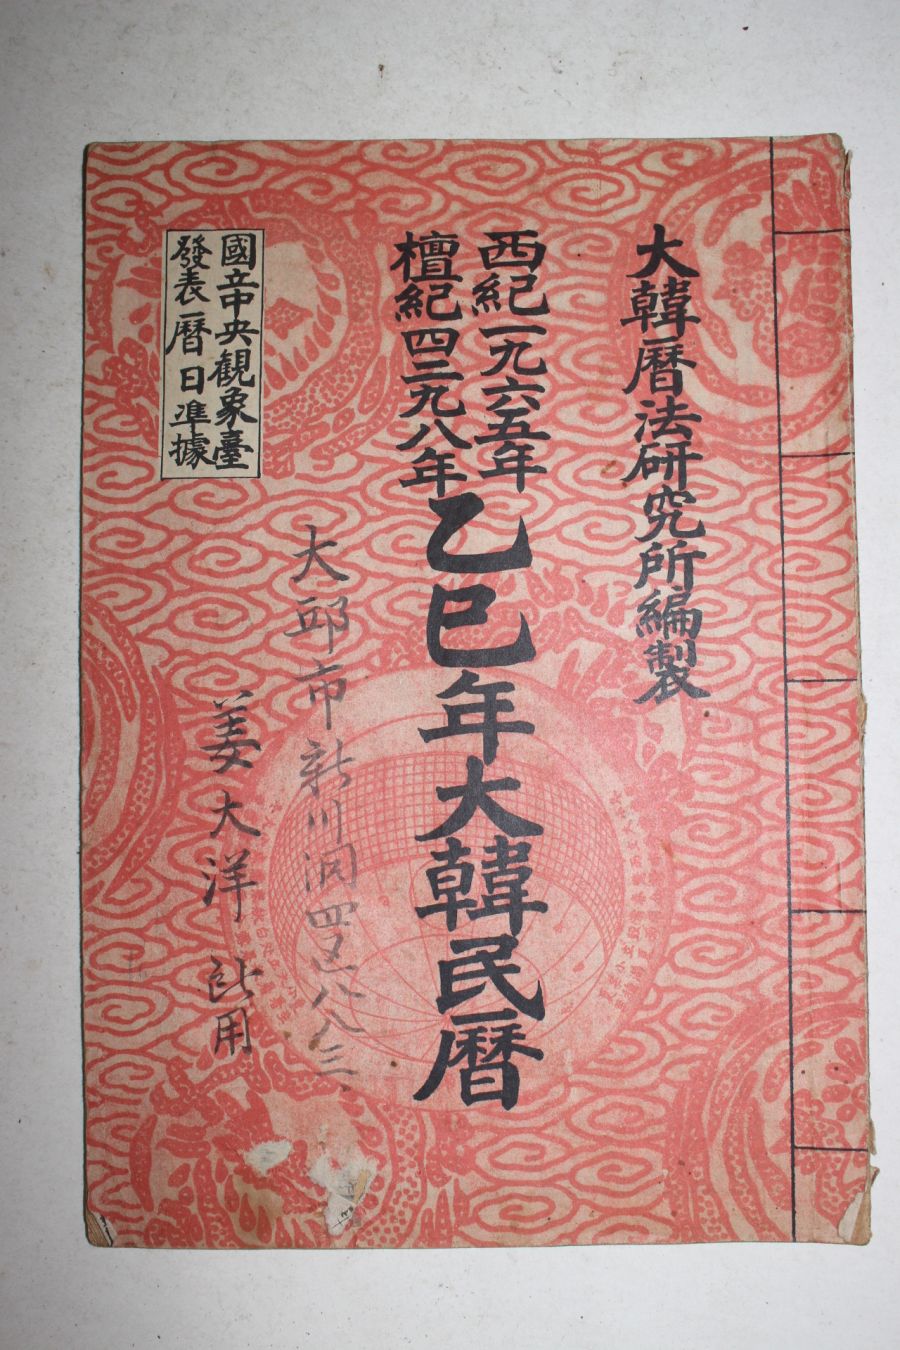 大韓曆法硏究所編製
西紀一九六五年
檀紀四二九八年
乙巳年大韓民曆
大邱市新川洞四區八八三
姜大洋 用
國立中央觀象臺
發表曆日準據